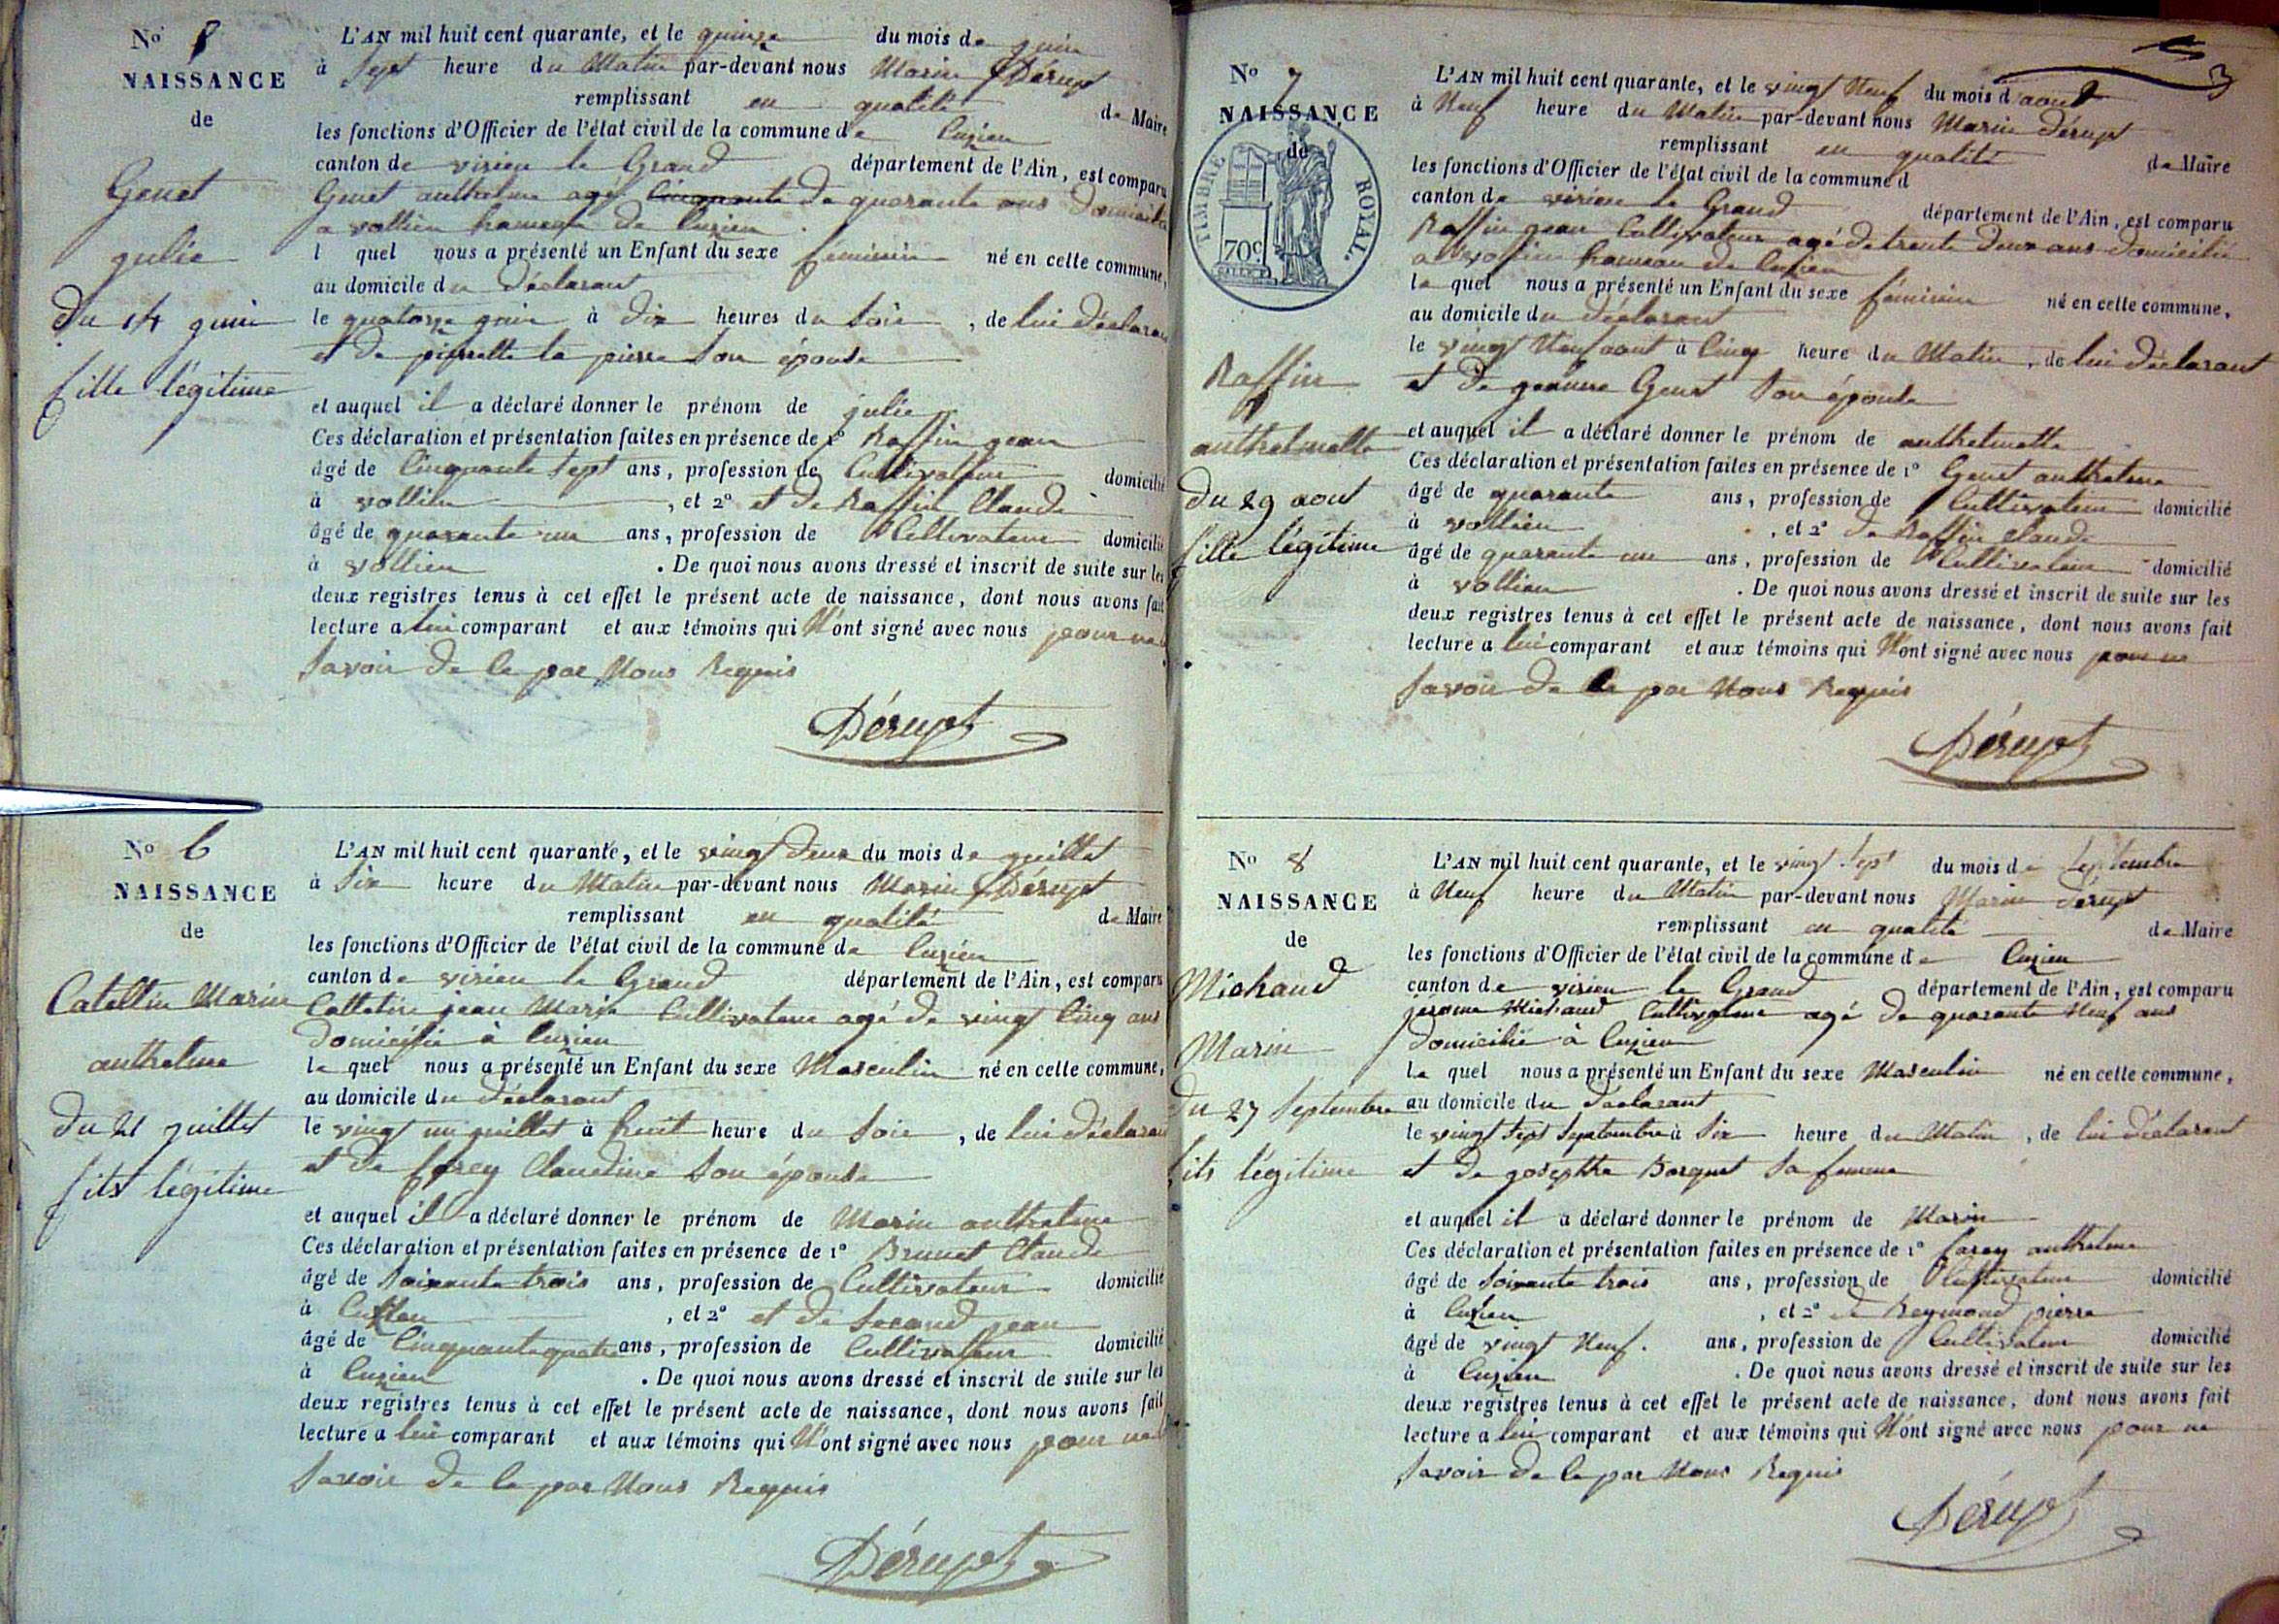 No 5
NAISSANCE
de
Genet
julie
Du 14 juin
fille légitime
L'AN mil huit cent quarante, et le quinze du mois de juin
à Sept heure du Matin par-devant nous Marin Dérupt
remplissant en qualité de Maire
les fonctions d'Officier de l'état civil de la commune de Cuzieu
canton de virieu le Grand département de l'Ain, est comparu
Genet anthelme agé cinquante de quarante ans Domicilié
a vollien hameau de Cuzieu
l quel nous a présenté un Enfant du sexe féminin né en cette commune,
au domicile du Déclarant
le quatorze juin à Dix heures du Soir, de lui Déclarant
et de pierrette la pierre Son épouse
et auquel il a déclaré donner le prénom de julie
Ces déclaration et présentation faites en présence de 1° Raffin jean
âgé de Cinquante Sept ans, profession de Cultivateur domicilié
à vollien, et 2° et de Raffin Claude
âgé de quarante un ans, profession de Cultivateur domicilié
à vollien. De quoi nous avons dressé et inscrit de suite sur les
deux registres tenus à cet effet le présent acte de naissance, dont nous avons fait
lecture a lui comparant et aux témoins qui N'ont signé avec nous pour ne
Savoir de ce par Nous Requis
Dérupt
No 6
NAISSANCE
de
Catellin Marin
anthelme
Du 21 juillet
fils légitime
L'AN mil huit cent quarante, et le vingt deux du mois de juillet
à Six heure du Matin par-devant nous Marin Dérupt
remplissant en qualité de Maire
les fonctions d'Officier de l'état civil de la commune de Cuzieu
canton de virieu le Grand département de l'Ain, est comparu
Cattelin jean Marie Cultivateur agé de vingt Cinq ans
Domicilié à Cuzieu
le quel nous a présenté un Enfant du sexe Masculin né en cette commune,
au domicile du déclarant
le vingt un juillet à huit heure du Soir, de lui Déclarant
et de forey Claudine Son épouse
et auquel il a déclaré donner le prénom de Marin anthelme
Ces déclaration et présentation faites en présence de 1° Brunet Claude
âgé de Soixante trois ans, profession de Cultivateur domicilié
à Cuzieu, et 2° et de Secand jean
âgé de Cinquante quatre ans, profession de Cultivateur domicilié
à Cuzieu. De quoi nous avons dressé et inscrit de suite sur les
deux registres tenus à cet effet le présent acte de naissance, dont nous avons fait
lecture a lui comparant et aux témoins qui N'ont signé avec nous pour ne
Savoir de ce par Nous Requis
Dérupt
3
No 7
NAISSANCE
de
TIMBRE ROYAL
70c
Raffin
anthelmette
Du 29 aout
fille légitime
L'AN mil huit cent quarante, et le vingt Neuf du mois d'aout
à Neuf heure du Matin par-devant nous Marin Dérupt
remplissant en qualité de Maire
les fonctions d'Officier de l'état civil de la commune d
canton de virieu le Grand département de l'Ain, est comparu
Raffin jean Cultivateur agé de trente Deux ans domicilié
a vollien hameau de Cuzieu
le quel nous a présenté un Enfant du sexe féminin né en cette commune,
au domicile du Déclarant
le vingt Neuf aout à Cinq heure du Matin, de lui déclarant
et de jeanne Genet Son épouse
et auquel il a déclaré donner le prénom de anthelmette
Ces déclaration et présentation faites en présence de 1° Genet anthelme
âgé de quarante ans, profession de Cultivateur domicilié
à vollien, et 2° de Raffin claude
âgé de quarante un ans, profession de Cultivateur domicilié
à vollien. De quoi nous avons dressé et inscrit de suite sur les
deux registres tenus à cet effet le présent acte de naissance, dont nous avons fait
lecture a lui comparant et aux témoins qui N'ont signé avec nous pour ne
Savoir de ce par Nous Requis
Dérupt
No 8
NAISSANCE
de
Michaud
Marin
Du 27 Septembre
fils légitime
L'AN mil huit cent quarante, et le vingt Sept du mois de Septembre
à Neuf heure du Matin par-devant nous Marin Dérupt
remplissant en qualité de Maire
les fonctions d'Officier de l'état civil de la commune de Cuzieu
canton de virieu le Grand département de l'Ain, est comparu
jérome Michaud Cultivateur agé de quarante Neuf ans
Domicilié à Cuzieu
le quel nous a présenté un Enfant du sexe Masculin né en cette commune,
au domicile du Déclarant
le vingt Sept Septembre à Six heure du Matin, de lui déclarant
et de josephte Borquet Sa femme
et auquel il a déclaré donner le prénom de Marin
Ces déclaration et présentation faites en présence de 1° forey anthelme
âgé de Soixante trois ans, profession de Cultivateur domicilié
à Cuzieu, et 2° de Reymond pierre
âgé de vingt Neuf. ans, profession de Cultivateur domicilié
à Cuzieu. De quoi nous avons dressé et inscrit de suite sur les
deux registres tenus à cet effet le présent acte de naissance, dont nous avons fait
lecture a lui comparant et aux témoins qui N'ont signé avec nous pour ne
Savoir de ce par Nous Requis
Dérupt